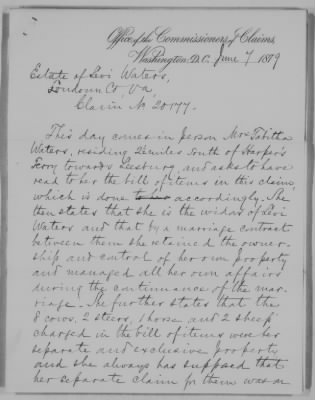 Office of the Commissioners of Claims,
Washington, D.C. June 7 1879
Estate of Levi Waters,
Loudoun Co. Va.
Claim No. 20177.
This day comes in person Mrs Tabitha
Waters, residing 2½ miles South of Harper's
Ferry towards Leesburg and asks to have
read to her the bill of items in this claim
which is done accordingly. She
then states that she is the widow of Levi
Waters and that by a marriage contract
between them she retained the owner-
ship and control of her own property
and managed all her own affairs
during the continuance of the mar-
riage. She further states that the
8 cows, 2 steers, 1 horse and 2 sheep
charged in the bill of items were her
separate and exclusive property
and she always has supposed that
her separate claim for them was on